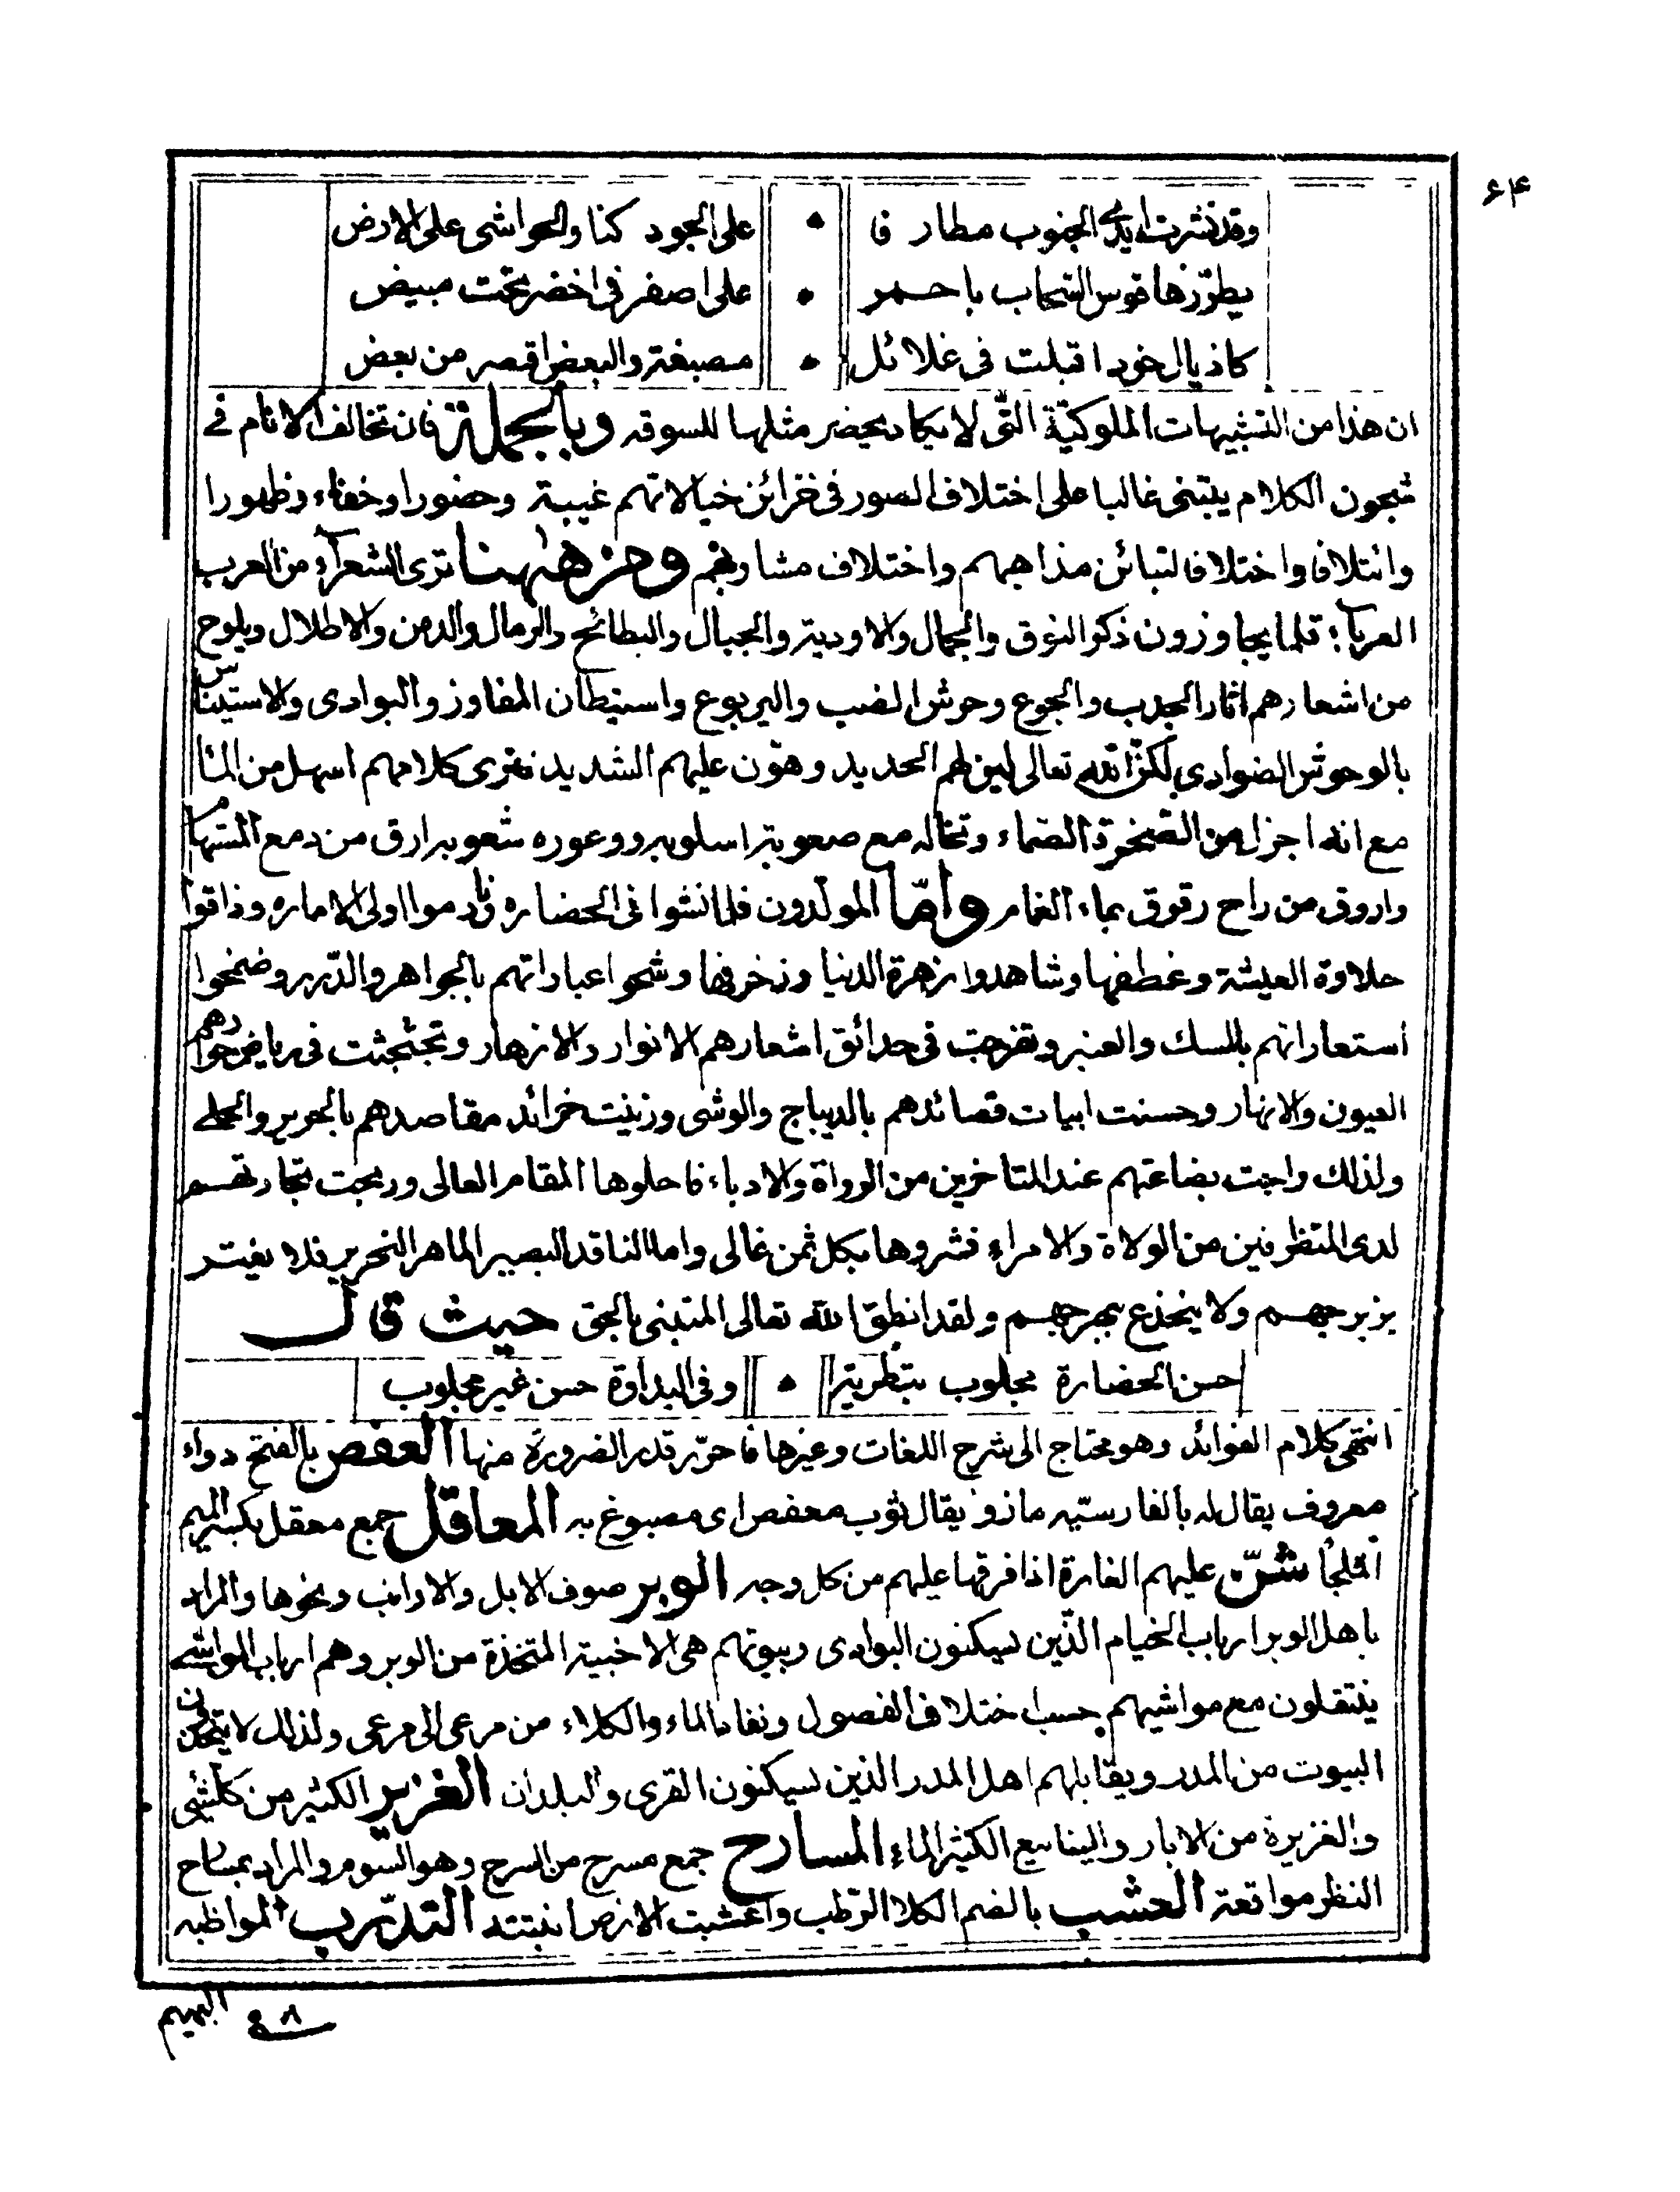 ۶۴
وقد نشرت ايدي الجنوب مطارفا • على الجود كنا والحواشى على الارض
يطرّزها قوس السّحاب باحمر • على اصفر فى اخضر تحت مبيض
كاذيال خود اقبلت فى غلائل • مصبغة والبعض اقصر من بعض
ان هذا من التشبيهات الملوكيّة الّتى لا يكاد يحضر مثلها للسوقه وبالجملة فان تخالف الانام فے
شجون الكلام يبتنى غالبا على اختلاف الصور فى خزائن خيالاتهم غيبة وحضورا وخفاء وظهورا
وائتلافا واختلافا لتبائن مذاهبهم واختلاف مشاربهم ومن ههنا ترى الشعرآء من العرب
العرباء قلما يجاوزون ذكر النوق والجمال والاودية والجبال والبطائح والرمال والدمن والاطلال ويلوح
من اشعارهم اثار الجدب والجوع وحرش الضب واليربوع واستيطان المفاوز والبوادى والاستيناس
بالوحوش الضوادى لكنّ الله تعالى لين لهم الحديد وهوّن عليهم الشديد فترى كلامهم اسهل من الماء
مع انه اجزل من الصّخرة الصّماء وتخاله مع صعوبة اسلوبه ووعوره شعوبه ارق من دمع المستهام
واروق من راح رقوق بماء الغمام وامّا المولّدون فلما نشوا فى الحضاره وخدموا اولى الاماره وذاقوا
حلاوة العيشة وغطفها وشاهدوا زهرة الدنيا وزخرفها وشحوا عباراتهم بالجواهر والدّرر وضمخوا
استعاراتهم بالمسك والعنبر وتفرجت فى حدائق اشعارهم الانوار والازهار وتجثجثت فى رياض حوارهم
العيون والانهار وحسنت ابيات قصائدهم بالديباج والوشى وزينت خرائد مقاصدهم بالحرير والحلے
ولذلك راجت بضاعتهم عند المتاخرين من الرواة والادباء فاحلوها المقام العالى وربحت تجارتهم
لدى المتظرفين من الولاة والامراء فشروها بكل ثمن غالى واما الناقد البصير الماهر النحرير فلا يغتر
بزبرجهم ولا ينخدع ببهرجهم ولقد انطق الله تعالى المتنبى بالحق حيث قال
حسن الحضارة مجلوب بتطرية • وفى البداوة حسن غير مجلوب
انتهى كلام الفوائد وهو محتاج الى شرح اللغات وغيرها فاحرّر قدر الضرورة منها العفص بالفتح دواء
معروف يقال له بالفارسيّه مازو يقال ثوب معفص اى مصبوغ به المعاقل جمع معقل بكسر الميم
الملجأ شنّ عليهم الغارة اذا فرقها عليهم من كل وجه الوبر صوف الابل والارانب ونحوها والمراد
باهل الوبر ارباب الخيام الّذين يسكنون البوادى وبيوتهم هى الاخبية المتخذة من الوبر وهم ارباب المواشے
ينتقلون مع مواشيهم حسب اختلاف الفصول ونفاد الماء والكلاء من مرعى الى مرعى ولذلك لا يتخذون
البيوت من المدر ويقابلهم اهل المدر الذين يسكنون القرى والبلدان الغزير الكثير من كل شئى
والغزيرة من الابار والينابيع الكثير الماء المسارح جمع مسرح من السرح وهو السوم والمراد بمسارح
النظر مواقعة العشب بالضم الكلا الرّطب واعشبت الارض انبتته التدرّب المواظبه
البهيم